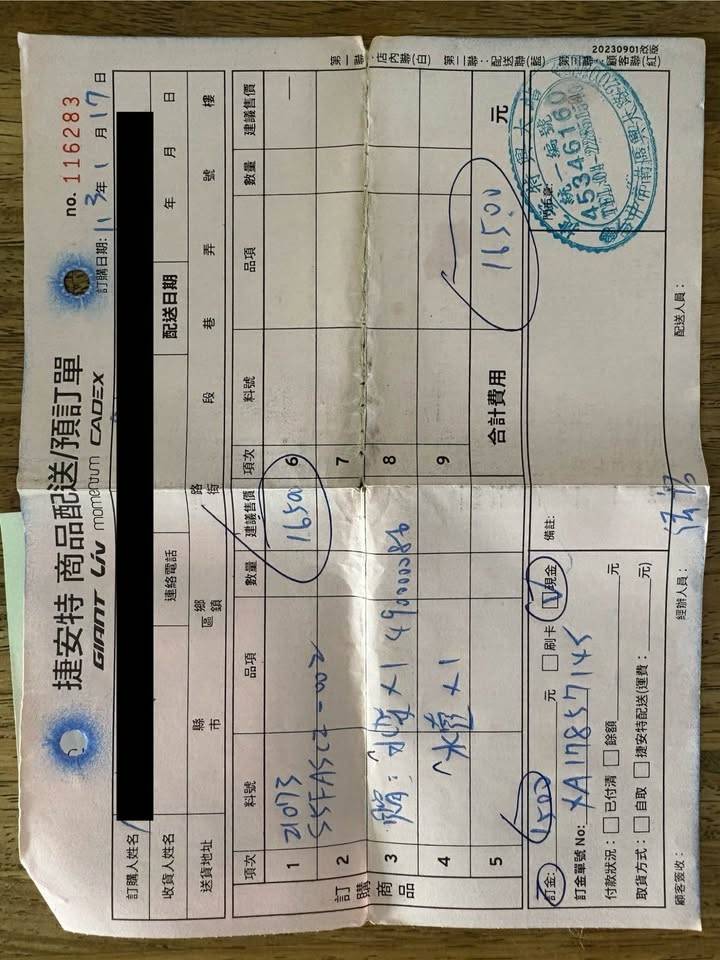 20230901改版
捷安特 商品配送/預訂單
no. 116283
GIANT Liv momentum CADEX
訂購日期: 113年 1月17日
訂購人姓名
收貨人姓名
連絡電話
配送日期
年 月 日
送貨地址
縣市
鄉鎮區
路街
段 巷 弄 號 樓
訂購商品
項次 料號 品項 數量 建議售價 項次 料號 品項 數量 建議售價
1 21073 16500 6
2 SSFASCZ-002 7
3 贈:水壺x1 490000086 8
4 水壺x1 9
5 合計費用 16500 元
訂金: 1500 元 刷卡 現金
備註:
訂金單號 No: XA17857145
付款狀況: 已付清 餘額 元
取貨方式: 自取 捷安特配送(運費: 元)
統一編號
45346160
顧客簽收:
經辦人員:
配送人員:
第一聯:店內聯(白) 第二聯:配送聯(藍) 第三聯:顧客聯(紅)